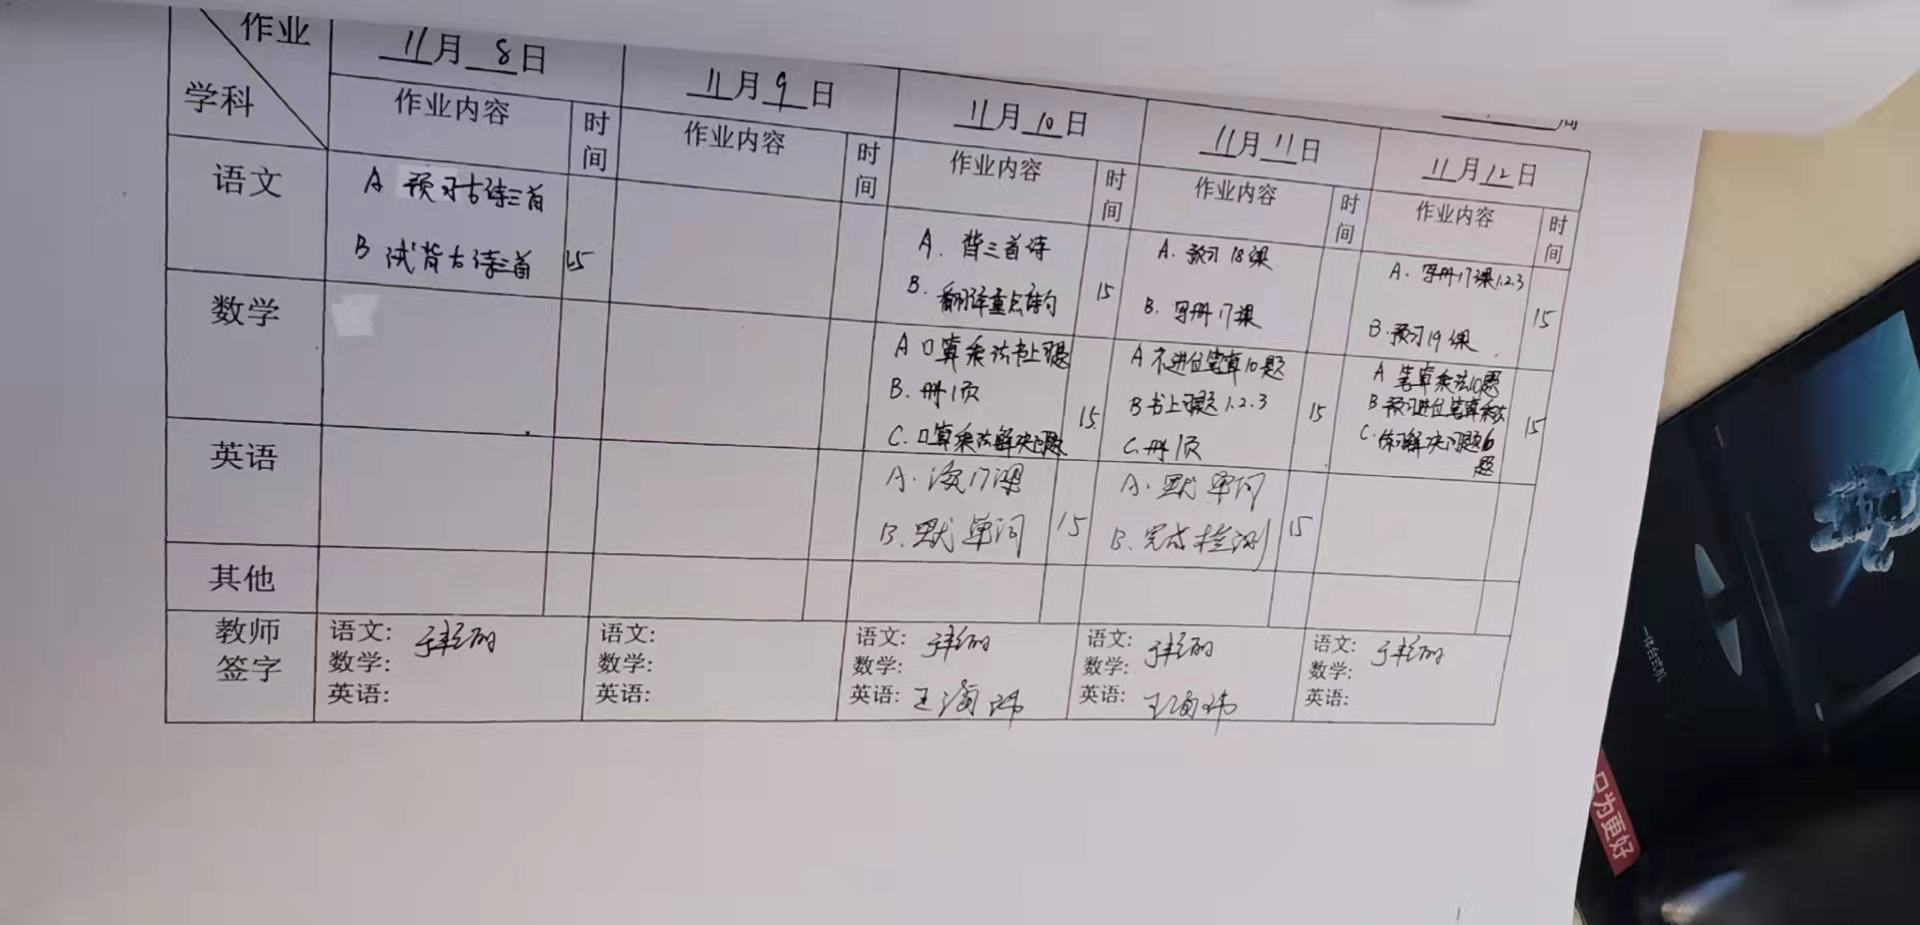 作业
学科
11月8日
11月9日
11月10日
11月11日
11月12日
周
作业内容 时间
作业内容 时间
作业内容 时间
作业内容 时间
作业内容 时间
语文
A 预习古诗三首
B 试背古诗三首 15
A. 背三首诗
B. 翻译重点诗句 15
A. 预习18课
B. 写册17课
A. 写册17课1.2.3
B. 预习19课 15
数学
A 口算乘法书上习题
B. 册1页
C. 口算乘法解决问题 15
A 不进位笔算10题
B 书上习题1.2.3
C. 册1页 15
A 笔算乘法10题
B 预习进位笔算乘法
C. 练习解决问题6题 15
英语
A. 读17课
B. 默单词 15
A. 默单词
B. 完成检测 15
其他
教师签字
语文:
数学:
英语:
语文:
数学:
英语:
语文:
数学:
英语: 王
语文:
数学:
英语: 王
语文:
数学:
英语:
一体台式机
只为更好